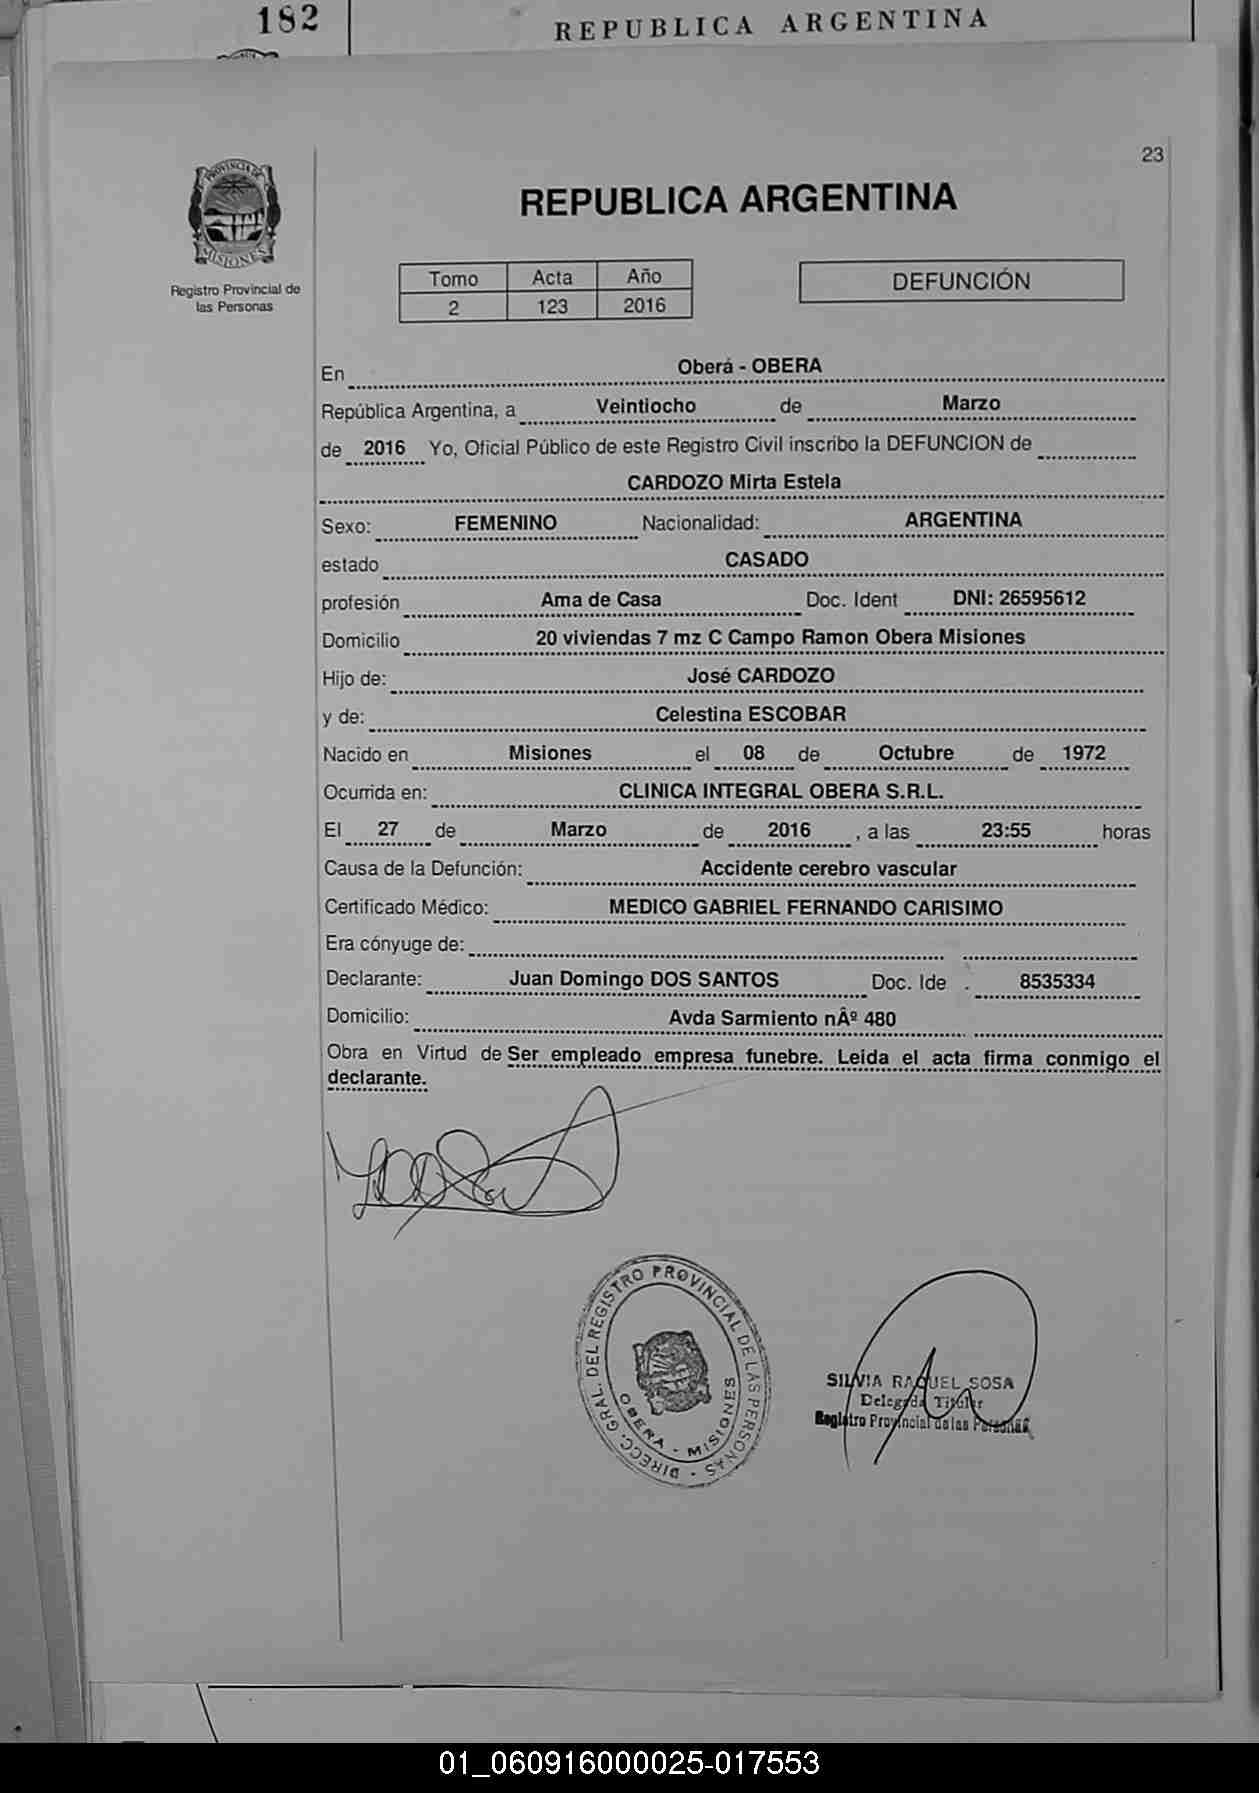 182
REPUBLICA ARGENTINA
23
PROVINCIA DE
MISIONES
Registro Provincial de
las Personas
REPUBLICA ARGENTINA
Tomo Acta Año
2 123 2016
DEFUNCIÓN
En Oberá - OBERA
República Argentina, a Veintiocho de Marzo
de 2016 Yo, Oficial Público de este Registro Civil inscribo la DEFUNCION de
CARDOZO Mirta Estela
Sexo: FEMENINO Nacionalidad: ARGENTINA
estado CASADO
profesión Ama de Casa Doc. Ident DNI: 26595612
Domicilio 20 viviendas 7 mz C Campo Ramon Obera Misiones
Hijo de: José CARDOZO
y de: Celestina ESCOBAR
Nacido en Misiones el 08 de Octubre de 1972
Ocurrida en: CLINICA INTEGRAL OBERA S.R.L.
El 27 de Marzo de 2016 , a las 23:55 horas
Causa de la Defunción: Accidente cerebro vascular
Certificado Médico: MEDICO GABRIEL FERNANDO CARISIMO
Era cónyuge de:
Declarante: Juan Domingo DOS SANTOS Doc. Ide . 8535334
Domicilio: Avda Sarmiento nÂº 480
Obra en Virtud de Ser empleado empresa funebre. Leida el acta firma conmigo el
declarante.
DIRECC. GRAL. DEL REGISTRO PROVINCIAL DE LAS PERSONAS
OBERA - MISIONES
SILVIA RAQUEL SOSA
Delegada Titular
Registro Provincial de las Personas
01_060916000025-017553